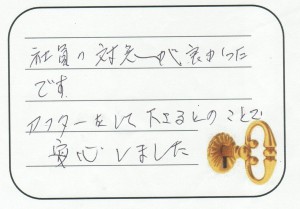 社員の対応が良かった
です
アフターをして下さるとのことで
安心しました